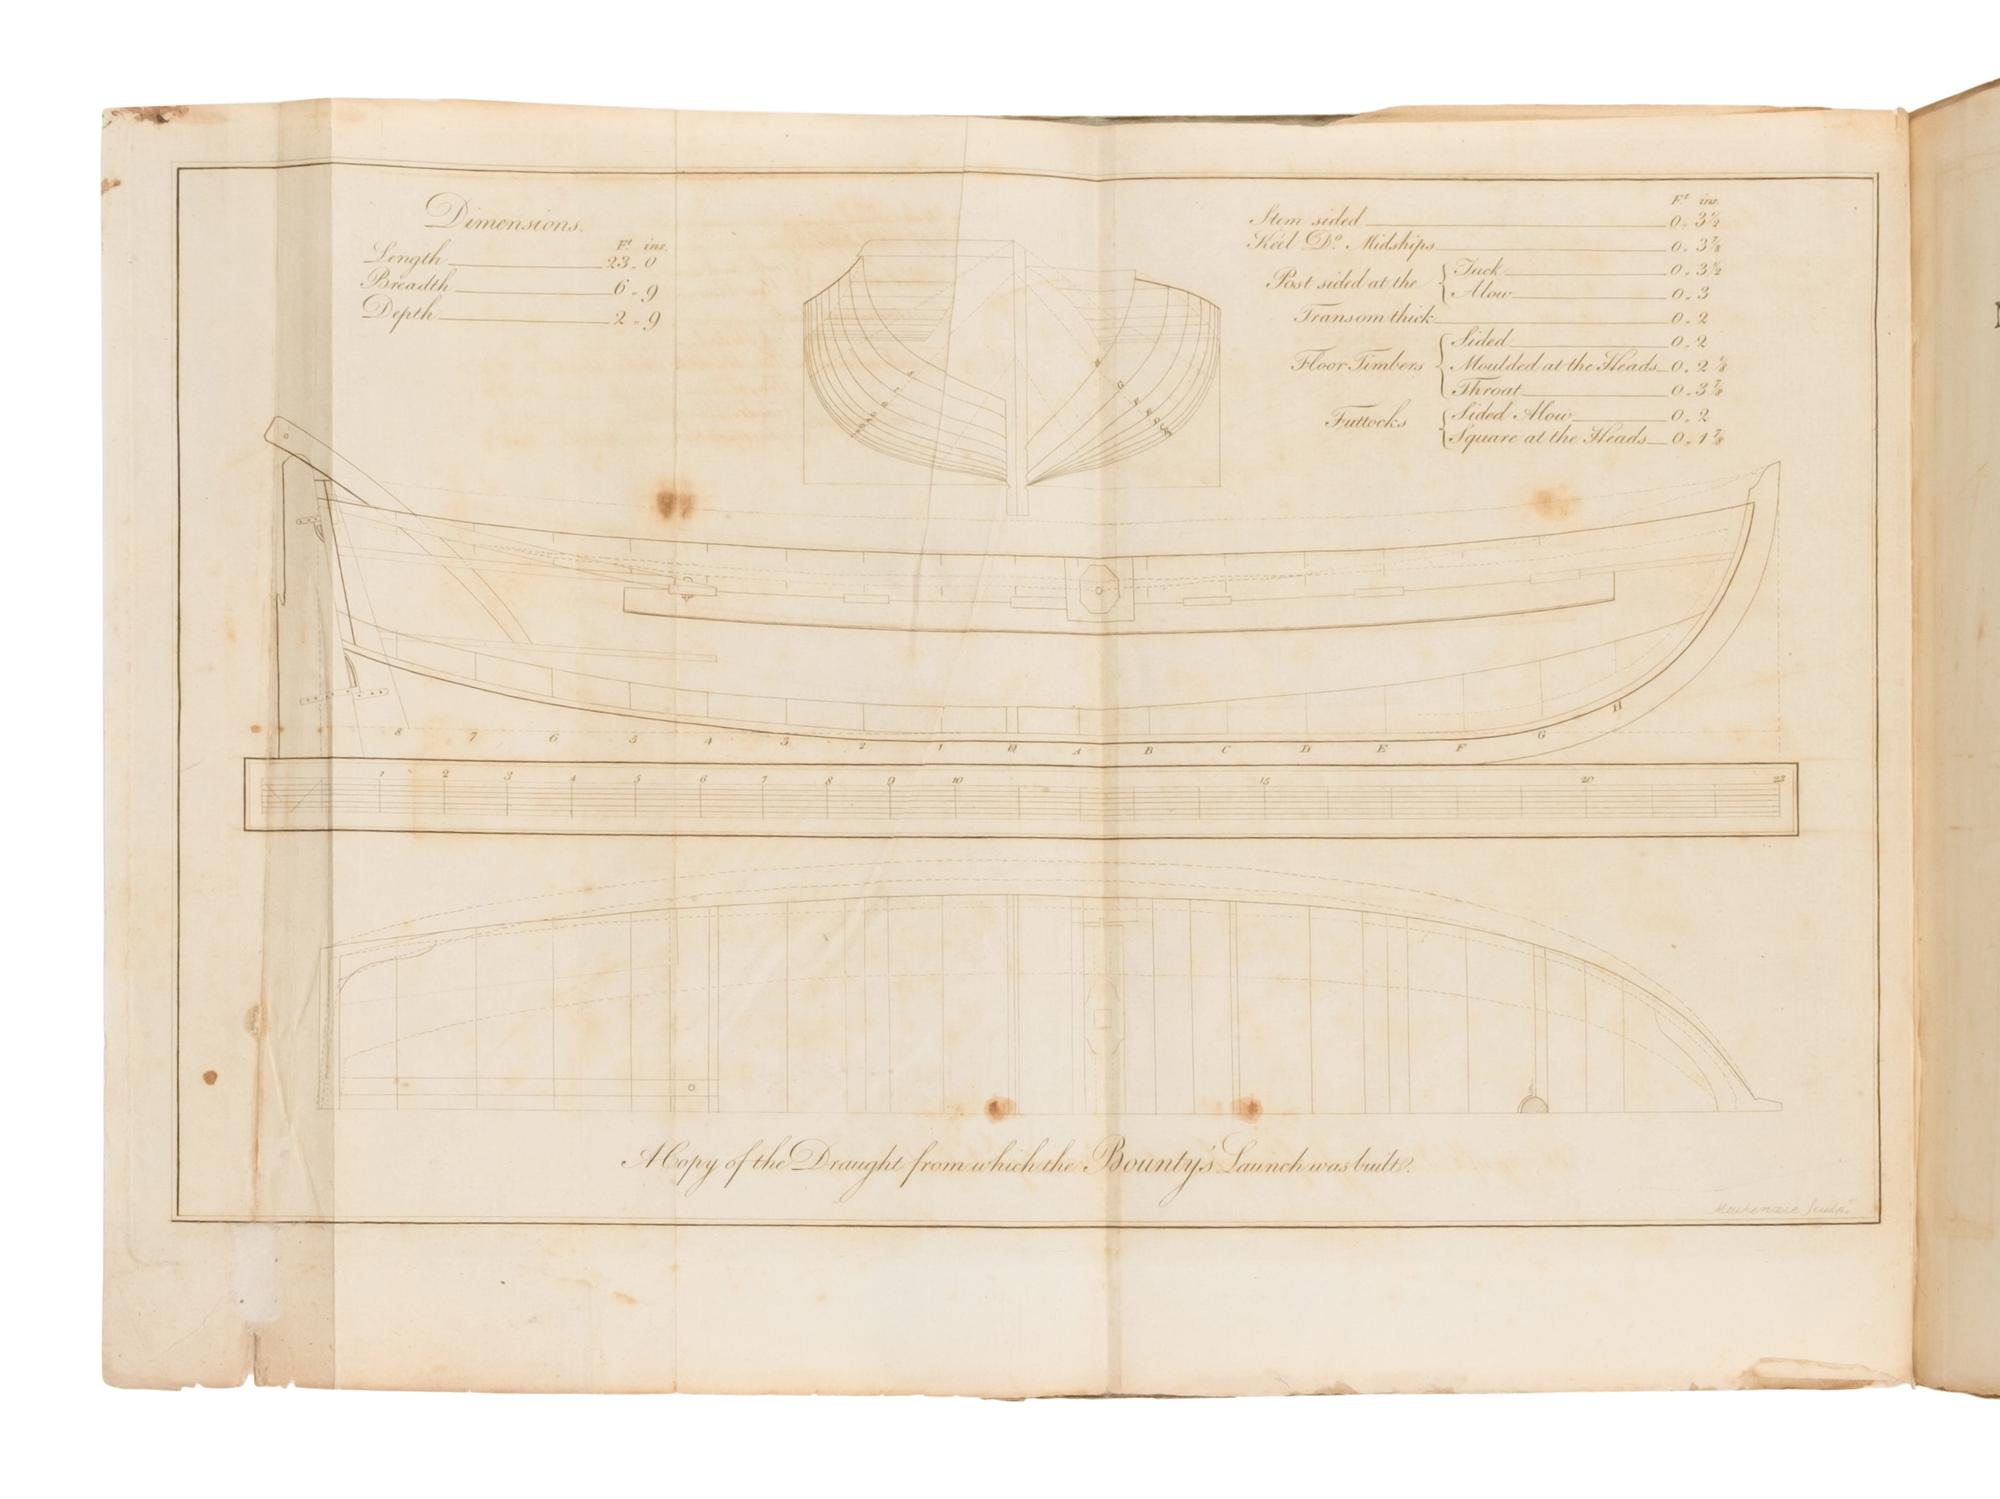 Dimensions.
Ft ins.
Length 23 „ 0
Breadth 6 „ 9
Depth 2 „ 9
Ft ins.
Stem sided 0 „ 3½
Keel Do. Midships 0 „ 3⅞
Post sided at the { Tuck 0 „ 3½
Alow 0 „ 3
Transom thick 0 „ 2
Floor Timbers { Sided 0 „ 2
Moulded at the Heads 0 „ 2⅛
Throat 0 „ 3⅞
Futtocks { Sided Alow 0 „ 2
Square at the Heads 0 „ 1⅞
8 7 6 5 4 3 2 1 A B C D E F G H
1 2 3 4 5 6 7 8 9 10 15 20 23
A Copy of the Draught from which the Bounty's Launch was built.
Mackenzie Sculpt.